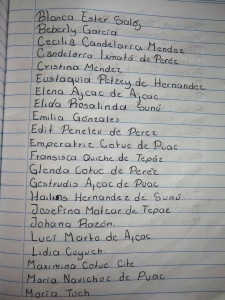 Blanca Ester Salóz
Beberly García
Cecilia Candelaria Mendez
Candelaria Ixmatá de Peréz
Cristina Méndez
Eustaquia Petzey de Hernandez
Elena Ajcac de Ajcac
Elida Rosalinda Sunú
Emilia Gonzales
Edit Peneleu de Perez
Emperatriz Cotuc de Puac
Fransisca Quiche de Tepáz
Glenda Cotuc de Peréz
Gestrudis Ajcac de Puac
Hernandez de Sunú
Josefina Matzar de Tepae
Johana Bazón
Luci Marta de Ajcac
Lidia Cuyuch
Maximina Cotuc Cite
María Navichoc de Puac
María Tuch